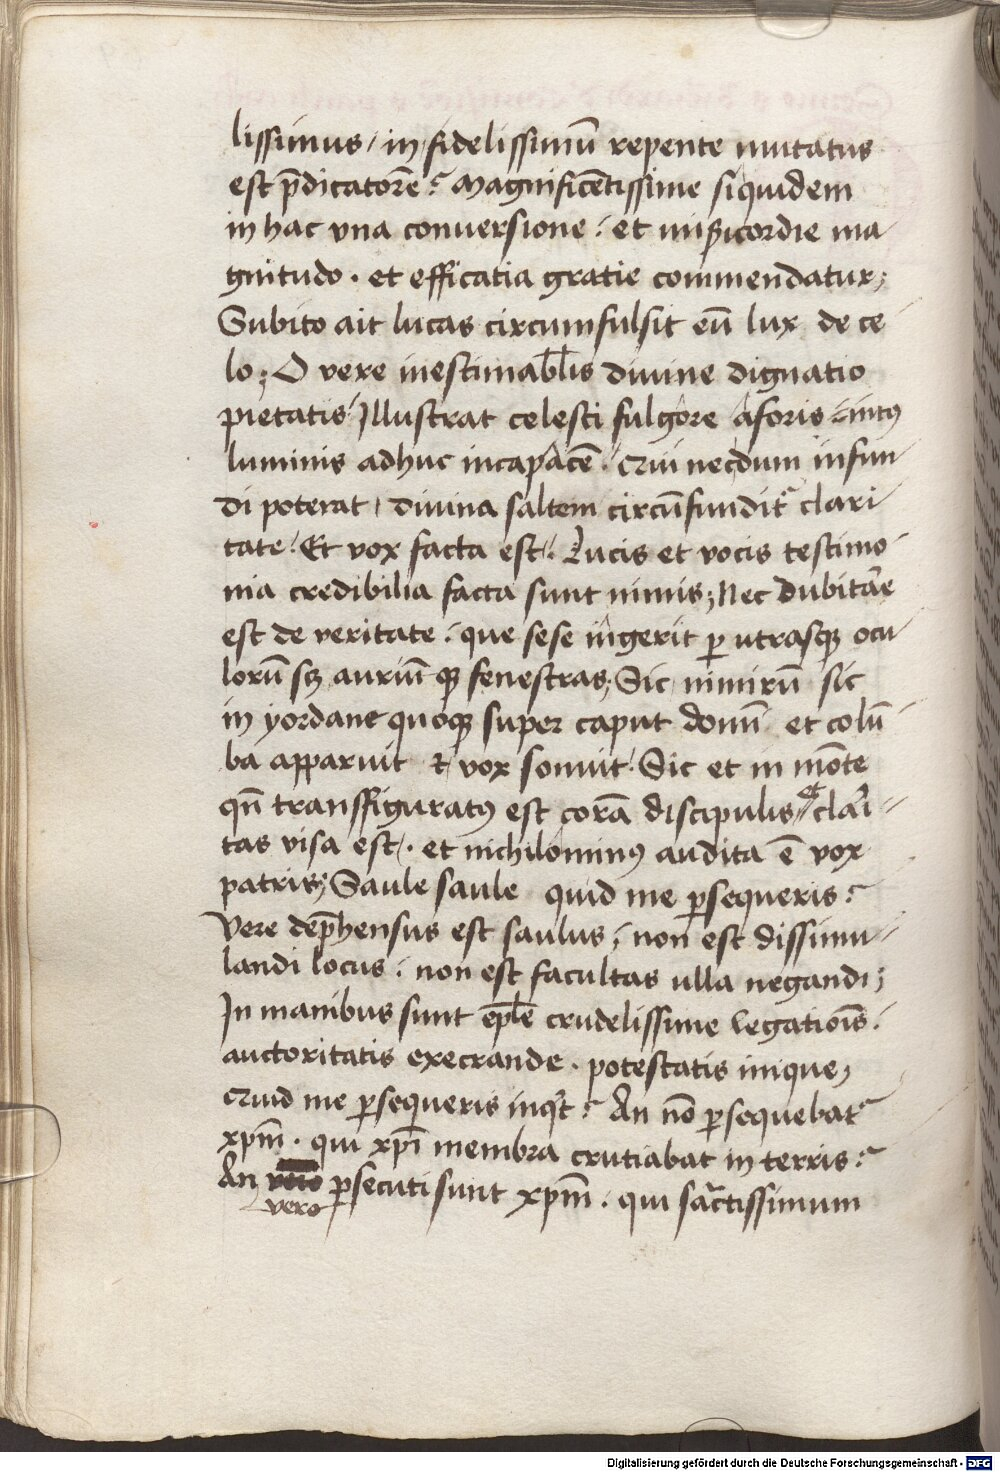 lissimus / in fidelissimū repente mutatus
est p̄dicatorē? Magnificētissime siquidem
in hac vna conuersione: et mis̄icordie ma
gnitudo · et efficatia gratie commendatur;
Subito ait lucas circumfulsit eū lux de ce
lo; O vere inestimabl̄is diuine dignatio
pietatis! Illustrat celesti fulgore aforis intꝰ
luminis adhuc incapacē · Cui necdum infun
di poterat / diuina saltem circūfundit᷑ clari
tate! Et vox facta est! Lucis et vocis testimo
nia credibilia facta sunt nimis; Nec dubitare
est de veritate: que sese ingerit ꝑ utrasqꝫ ocu
lorū sꝫ auriū qꝫ fenestras; Sic nimirū sic
in yordane quoqꝫ super caput domī et colū
ba apparuit ⁊ vox sonuit · Sic et in mōte
qn̄ transffiguratꝰ est corā discipulis clari
tas visa est · et nichilominꝰ audita ē vox
patris; Saule saule quid me ꝑsequeris?
Vere dep̄hensus est saulus; non est dissimu
landi locus: non est facultas ulla negandi;
In manibus sunt epl̄e crudelissime legatiōis:
auctoritatis execrande · potestatis inique;
Quid me ꝑsequeris inqͥt? An nō ꝑsequebat᷑
xp̄m · qui xp̄i membra crutiabat in terris?
An vero ꝑsecuti sunt xp̄m · qui sāctissimum
Digitalisierung gefördert durch die Deutsche Forschungsgemeinschaft - DFG